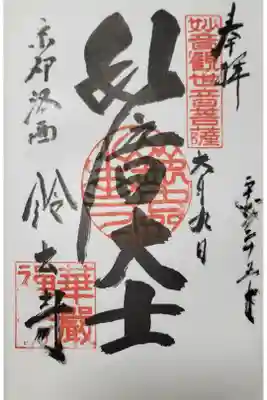 奉拝
平成二十五年
六月九日
妙音観世音菩薩
妙音大士
京都洛西 鈴虫寺
華厳